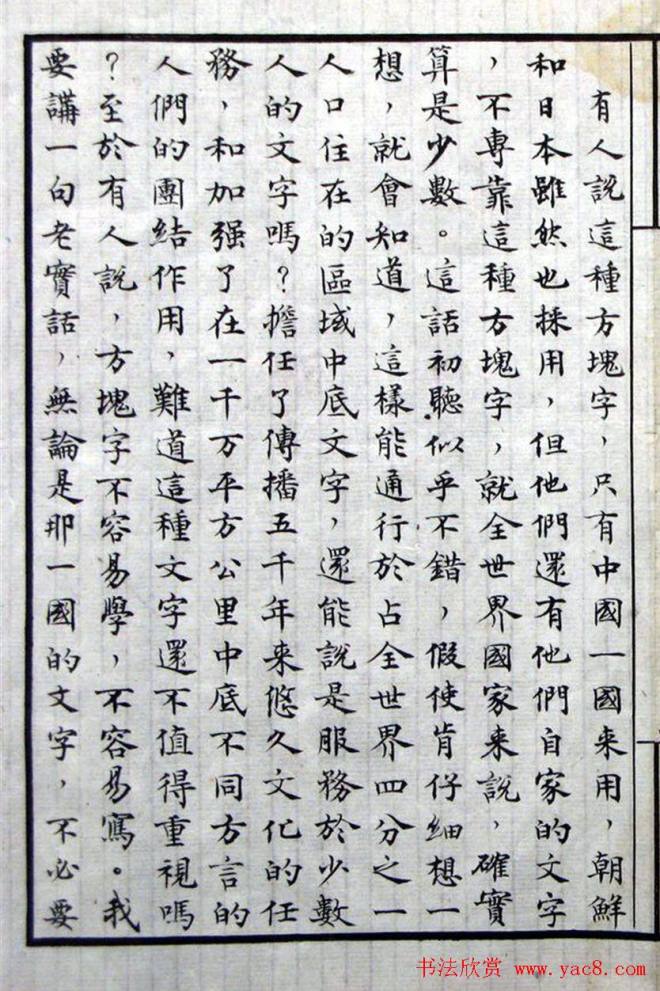 有人說這種方塊字，只有中國一國来用，朝鮮
和日本雖然也採用，但他們還有他們自家的文字
，不專靠這種方塊字，就全世界國家来說，確實
算是少數。這話初聽似乎不錯，假使肯仔細想一
想，就會知道，這樣能通行於占全世界四分之一
人口住在的區域中底文字，還能說是服務於少數
人的文字嗎？擔任了傳播五千年来悠久文化的任
務，和加强了在一千万平方公里中底不同方言的
人們的團結作用，難道這種文字還不值得重視嗎
？至於有人說，方塊字不容易學，不容易寫。我
要講一句老實話，無論是那一國的文字，不必要
书法欣赏 www.yac8.com